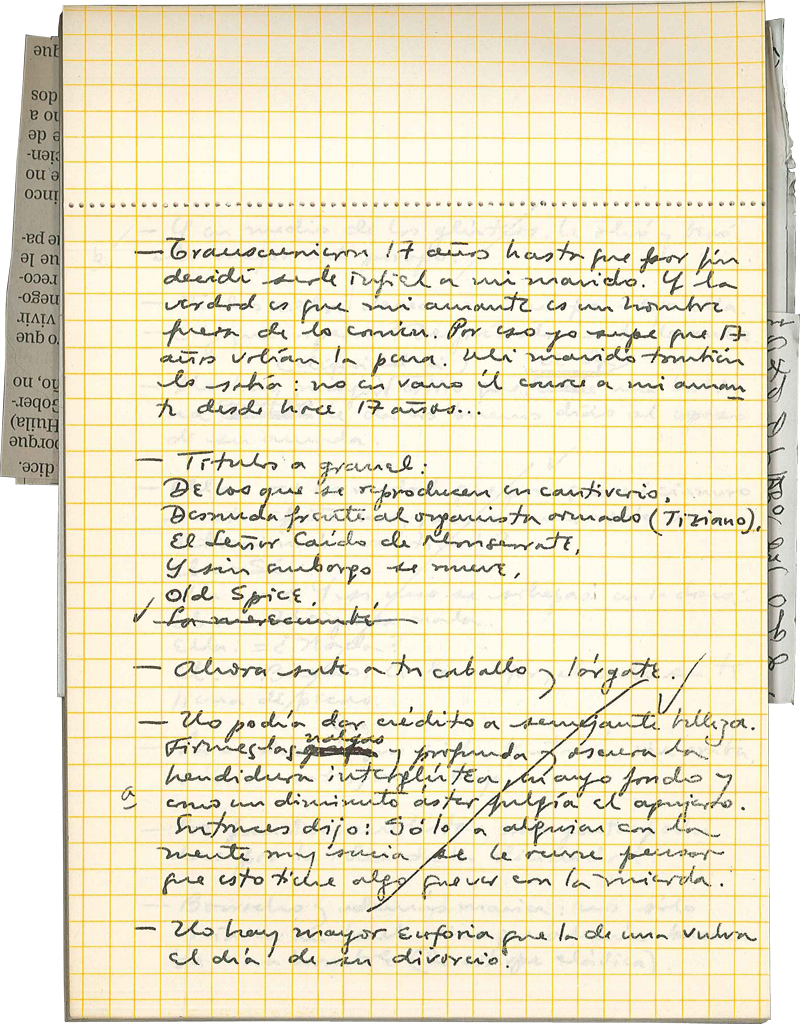 — Transcurrieron 17 años hasta que por fin
decidí serle infiel a mi marido. Y la
verdad es que mi amante es un hombre
fuera de lo común. Por eso yo supe que 17
años valían la pena. Mi marido también
lo sabía: no en vano él conoce a mi aman
te desde hace 17 años...
— Títulos a granel:
De los que se reproducen en cautiverio,
Desnuda frente al organista armado (Tiziano),
El Señor Caído de Monserrate,
Y sin embargo se mueve,
Old Spice,
✓
— Ahora sube a tu caballo y lárgate.
— No podía dar crédito a semejante belleza.
Firmes las nalgas y profunda y oscura la
hendidura interglútea, en cuyo fondo y
como un diminuto áster pulpía el apujerto.
Entonces dijo: Sólo a alguien con la
mente muy sucia se le ocurre pensar
que esto tiene algo que ver con la mierda.
— No hay mayor euforia que la de una vulva
el día de su divorcio.
que
dos
no a
e de
cien-
e no
inco
le pa-
ue le
reco-
nego-
vivir
o que
ño, no
Gober-
(Huila)
porque
dice.